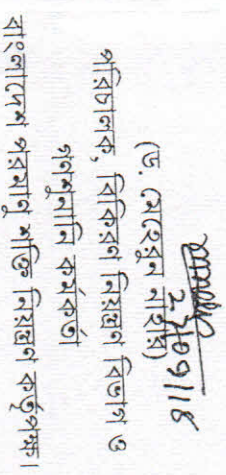 (ড. মেহেরুন নাহার)
পরিচালক, বিকিরণ নিয়ন্ত্রণ বিভাগ ও
গণশুনানি কর্মকর্তা
বাংলাদেশ পরমাণু শক্তি নিয়ন্ত্রণ কর্তৃপক্ষ।